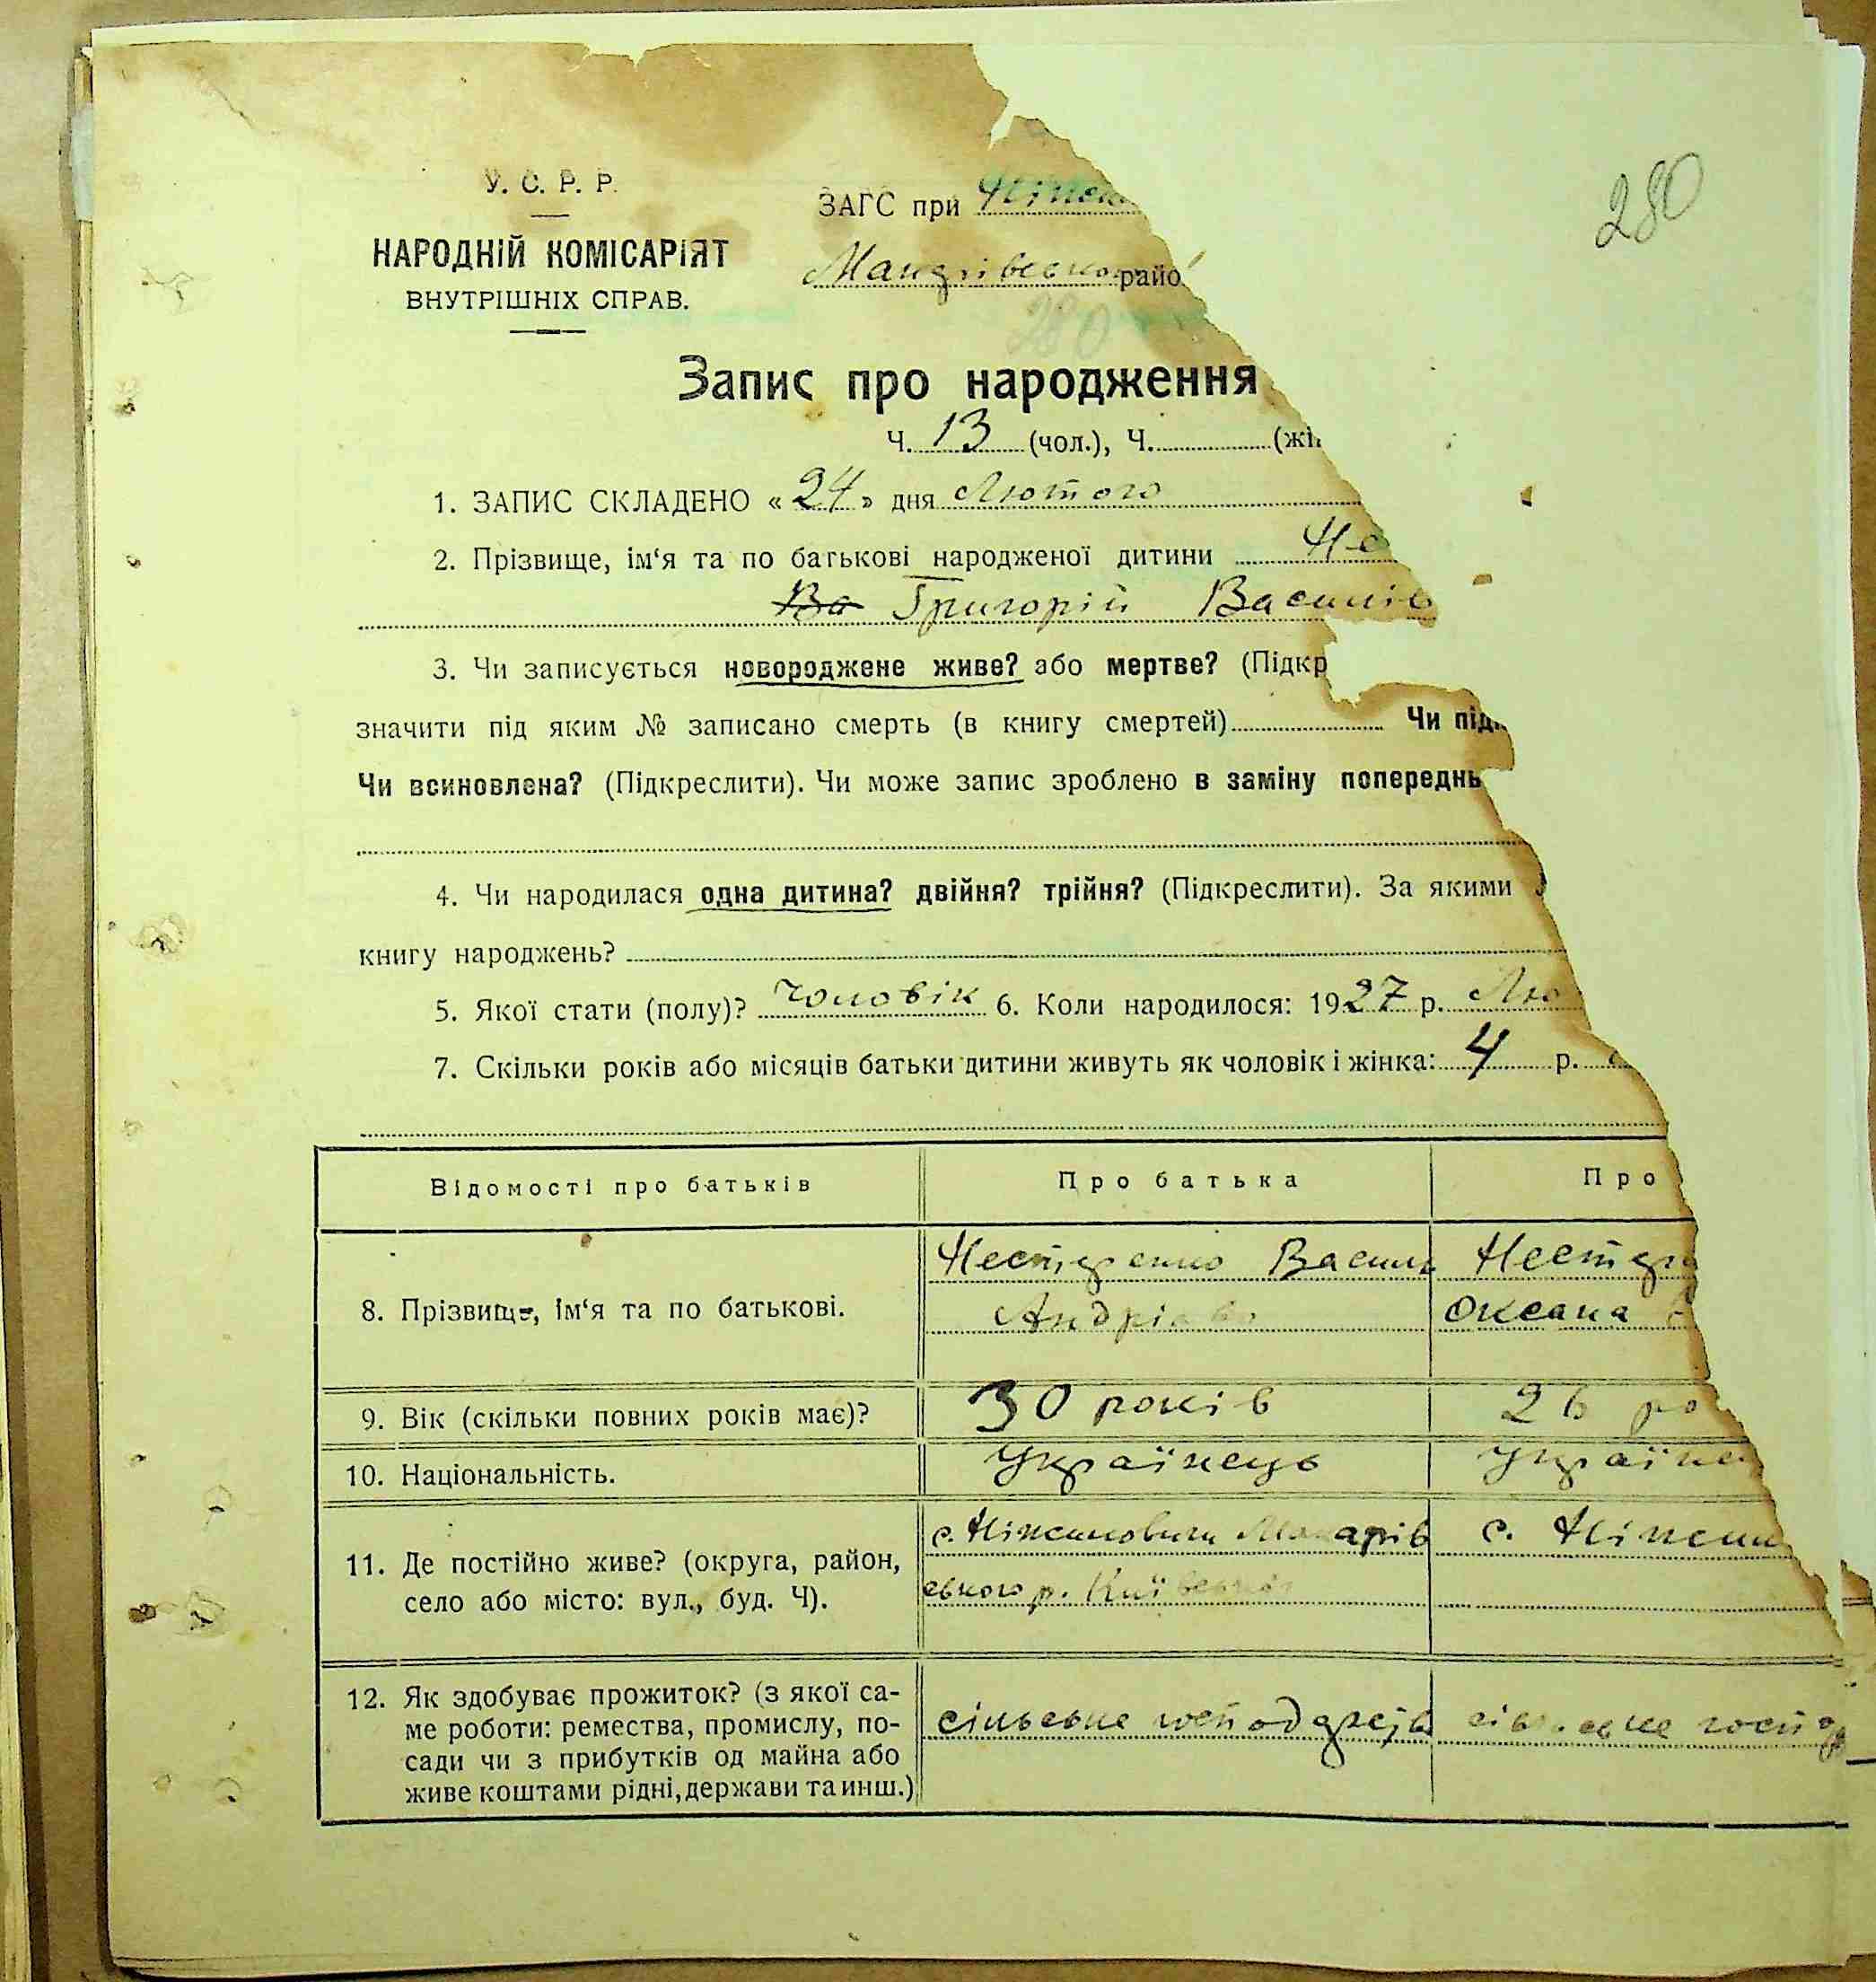 280
У. С. Р. Р.
ЗАГС при
НАРОДНІЙ КОМІСАРІЯТ
ВНУТРІШНІХ СПРАВ.
райо
280
Запис про народження
Ч. 13 (чол.), Ч. (жі
1. ЗАПИС СКЛАДЕНО « 24 » дня Лютого
2. Прізвище, ім‘я та по батькові народженої дитини Не
Ва Григорій Василів
3. Чи записується новороджене живе? або мертве? (Підкр
значити під яким № записано смерть (в книгу смертей) Чи під
Чи всиновлена? (Підкреслити). Чи може запис зроблено в заміну попереднь
4. Чи народилася одна дитина? двійня? трійня? (Підкреслити). За якими
книгу народжень?
5. Якої стати (полу)? чоловік 6. Коли народилося: 1927 р. Лю
7. Скільки років або місяців батьки дитини живуть як чоловік і жінка: 4 р.
Відомості про батьків Про батька Про
8. Прізвище, ім‘я та по батькові. Нестеренко Василь Андрієв Нестер Оксана
9. Вік (скільки повних років має)? 30 років 26 ро
10. Національність. Українець Україне
11. Де постійно живе? (округа, район,
село або місто: вул., буд. Ч). с. Ніжиловичи Макарів
ського р. Київської с. Ніжил
12. Як здобуває прожиток? (з якої са-
ме роботи: ремества, промислу, по-
сади чи з прибутків од майна або
живе коштами рідні, держави та инш.) сільське господарств сільське господ